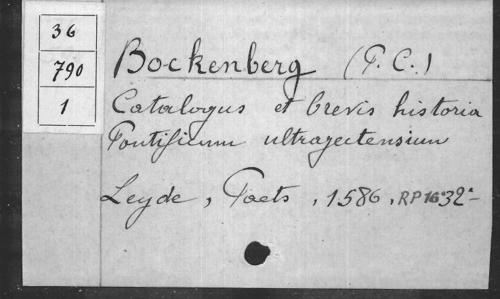 36
790
1
Bockenberg (P. C.)
Catalogus et brevis historia
Pontificum ultrajectensium
Leyde, Paets, 1586, RP 16° 32°-